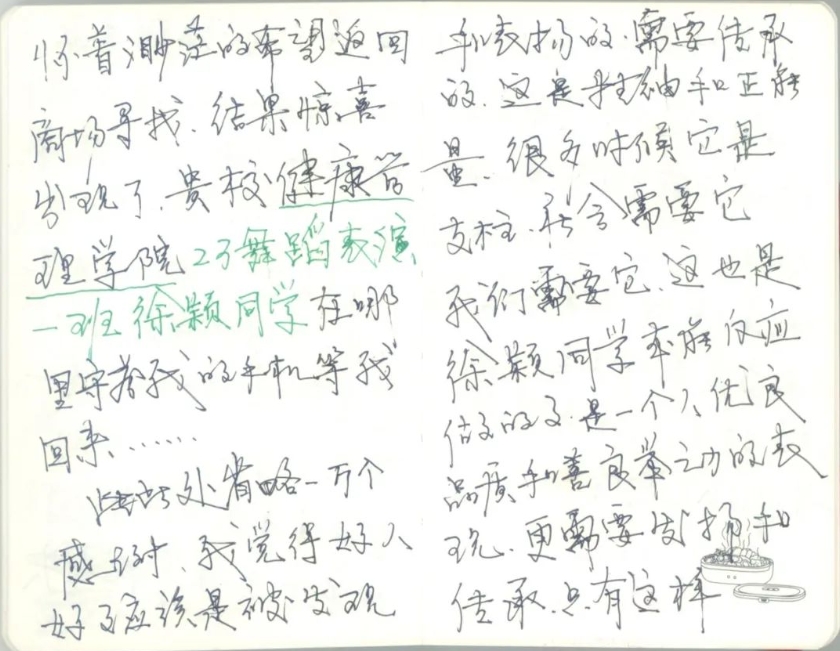 怀着渺茫的希望返回
商场寻找.结果惊喜
发现了.贵校健康管
理学院23舞蹈表演
一班徐颖同学在哪
里守着我的手机等我
回来……
此处省略一万个
感谢.我觉得好人
好事应该是被发现
和表扬的.需要传承
的.这是精神和正能
量.很多时候它是
支柱.社会需要它
我们需要它.这也是
徐颖同学本能反应
做的事.是一个人优良
品质和善良举动的表
现.更需要发扬和
传承.只有这样